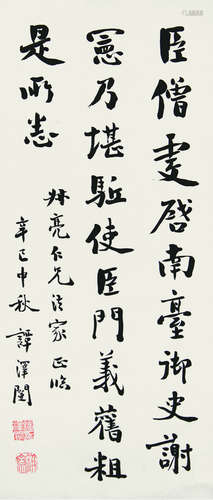 臣僧虔啓南臺御史謝
憲乃堪駈使臣門義舊粗
是所悉
叔亮仁兄法家正臨
辛巳中秋 譚澤闓